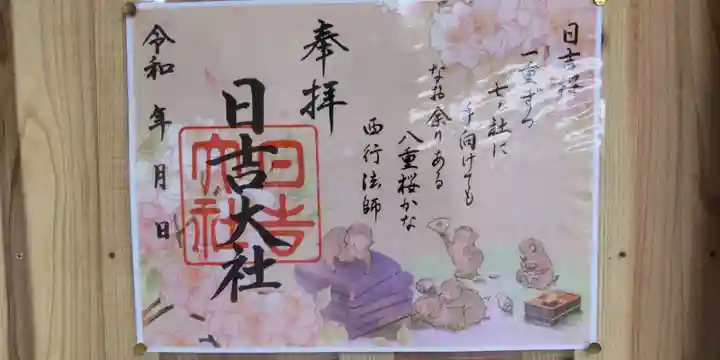 日吉桜
一重ずつ
七ツ社に
手向けても
なお余りある
八重桜かな
西行法師
奉拝
日吉大社
日吉
大社
令和 年 月 日